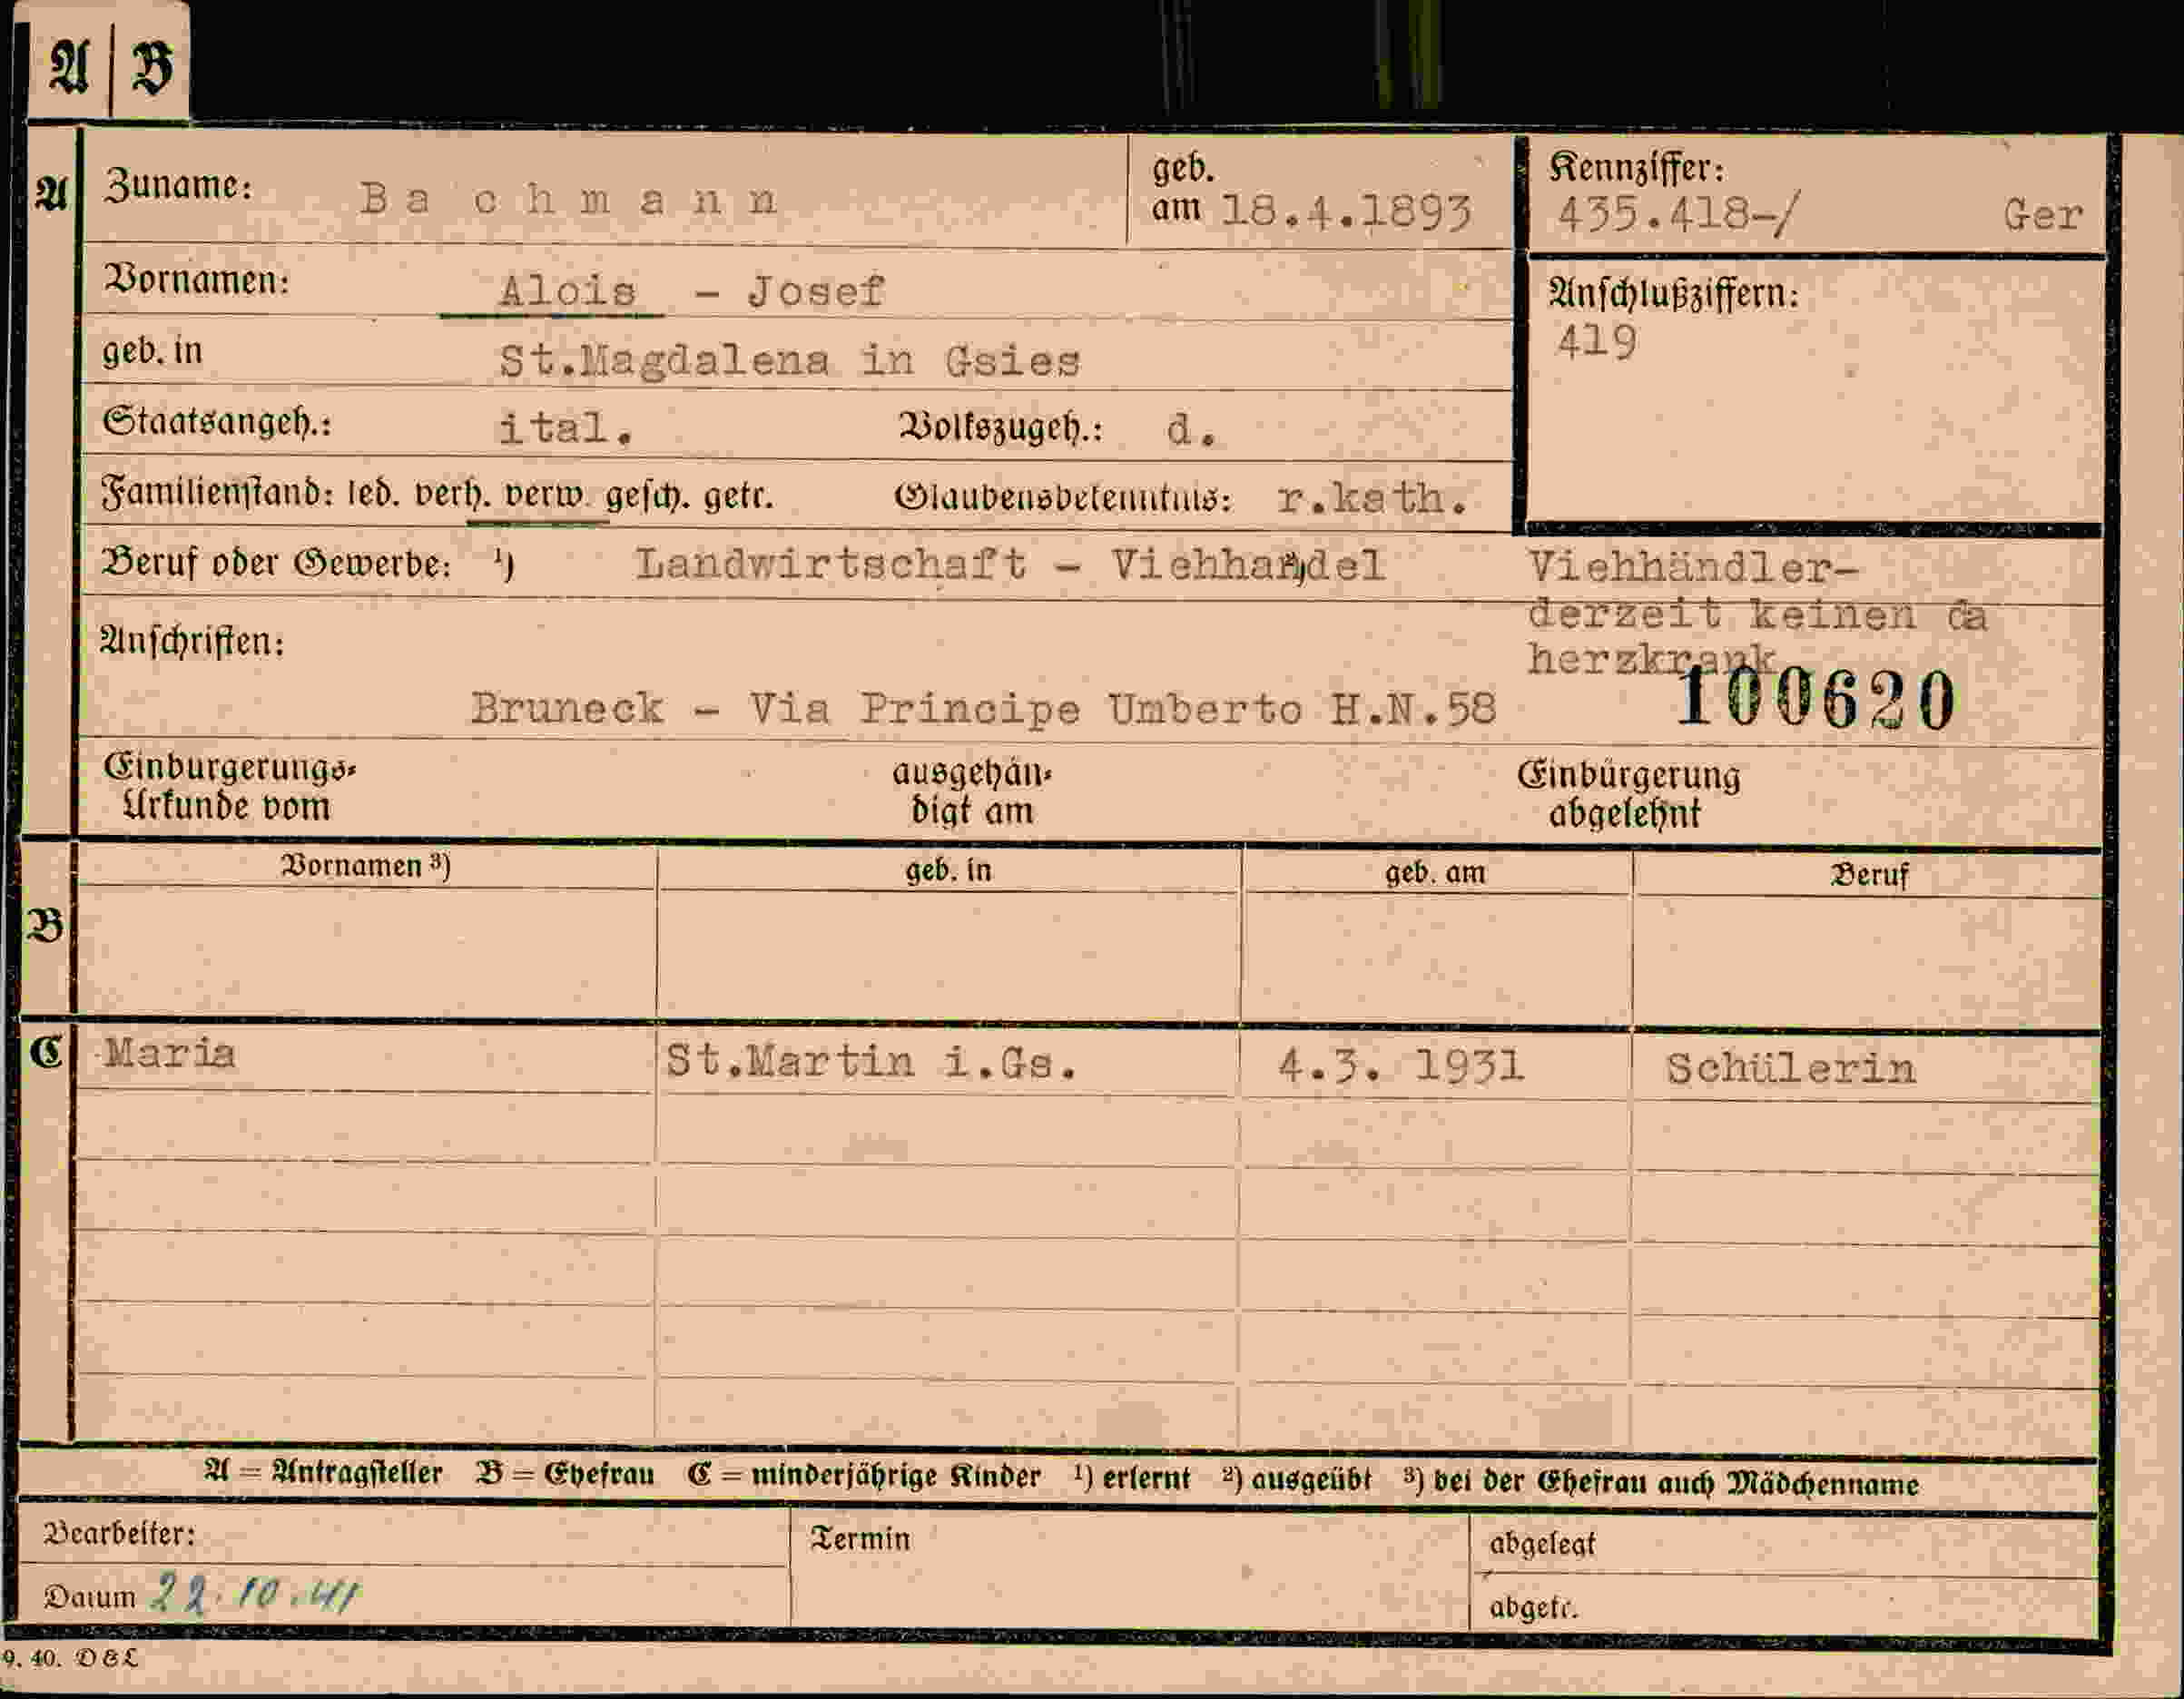 A | B
A Zuname: Bachmann geb. am 18.4.1893 Kennziffer: 435.418-/ Ger
Vornamen: Alois - Josef Anschlußziffern: 419
geb. in St.Magdalena in Gsies
Staatsangeh.: ital. Volkszugeh.: d.
Familienstand: led. verh. verw. gesch. getr. Glaubensbekenntnis: r.kath.
Beruf oder Gewerbe: ¹) Landwirtschaft - Viehhandel Viehhändler-
derzeit keinen da
herzkrank
Anschriften:
Bruneck - Via Principe Umberto H.N.58 100620
Einbürgerungs-
Urkunde vom
ausgehän-
digt am
Einbürgerung
abgelehnt
Vornamen ³) geb. in geb. am Beruf
B
C Maria St.Martin i.Gs. 4.3. 1931 Schülerin
A = Antragsteller B = Ehefrau C = minderjährige Kinder ¹) erlernt ²) ausgeübt ³) bei der Ehefrau auch Mädchenname
Bearbeiter: Termin abgelegt
Datum 22.10.41 abgetr.
9. 40. D&L